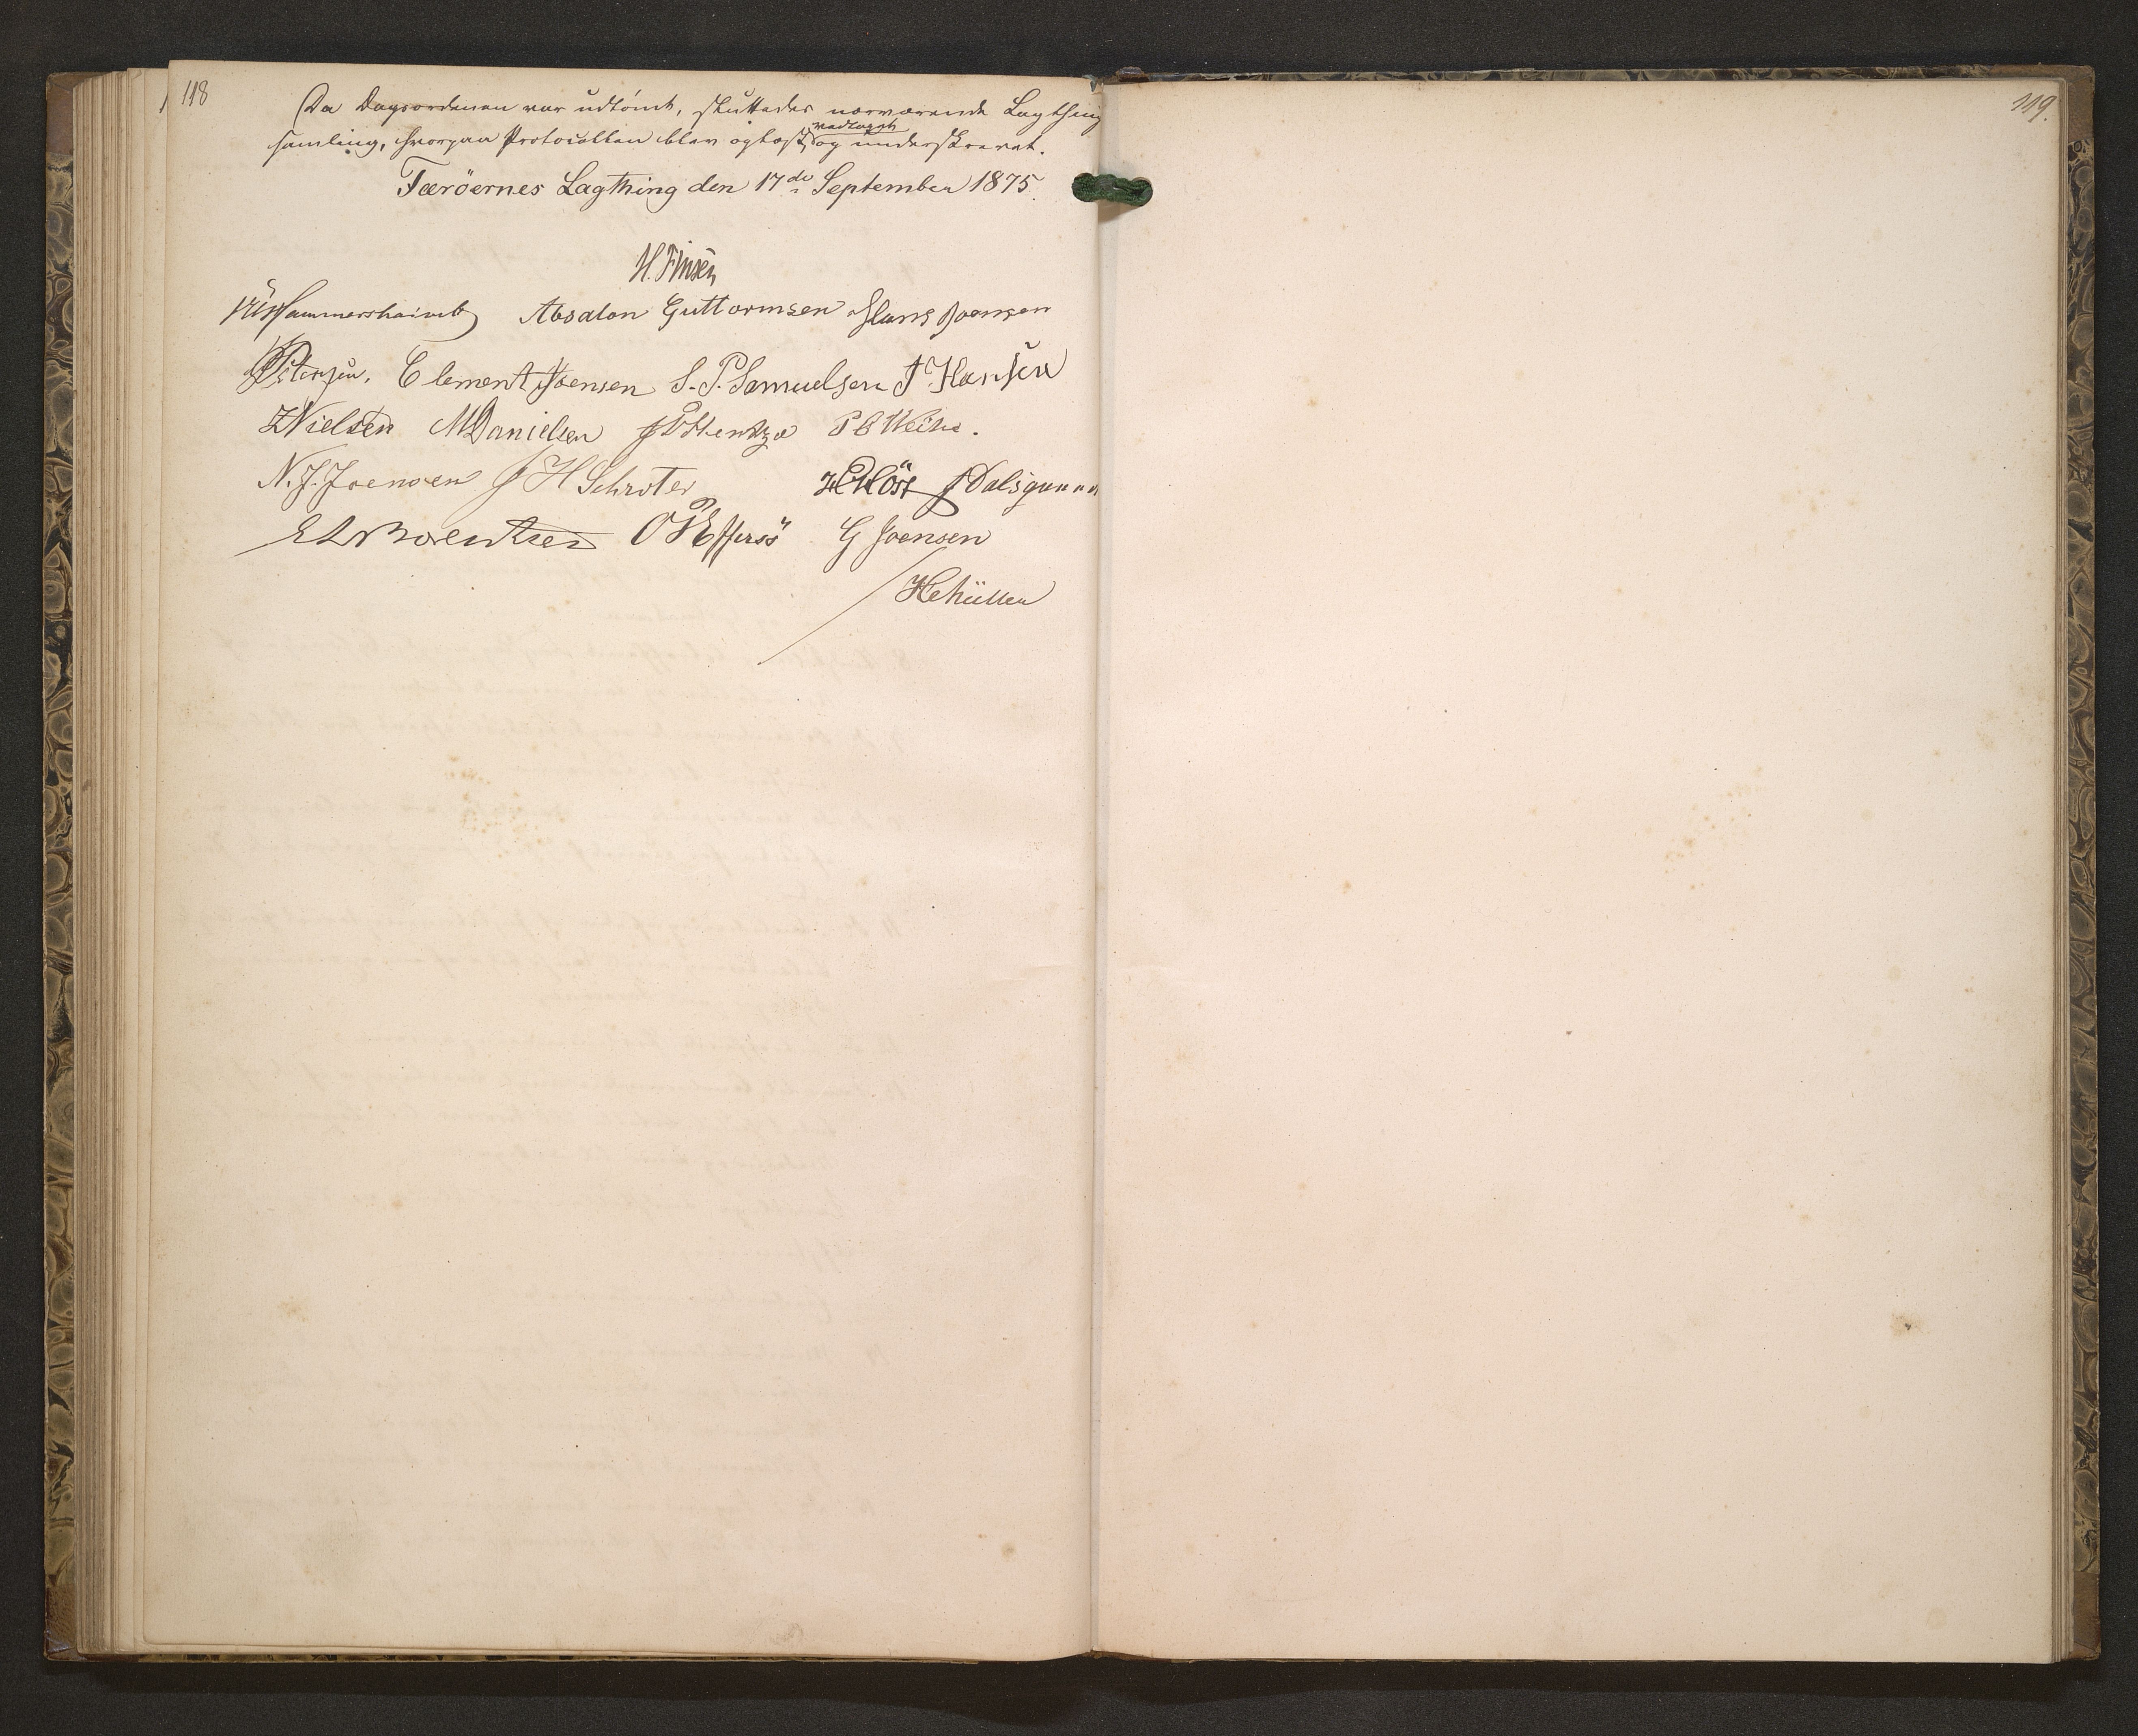 118
Da Dagsordenen var udtømt, sluttedes nærværende Lagthing
samling, hvorpaa Protocollen blev oplæst, vedtaget og underskrevet.
Færöernes Lagthing den 17de September 1875.
H. Finsen
Hammershaimb Absalon Guttormsen Hans Joensen
Petersen. Clement Joensen S. P. Samuelsen J. Hansen
Z Nielsen M Danielsen P B Weihe.
N. J. Joensen J H Schrøter Höst J Dalsgaard
O P Effersö G Joensen
H C Müller
119.